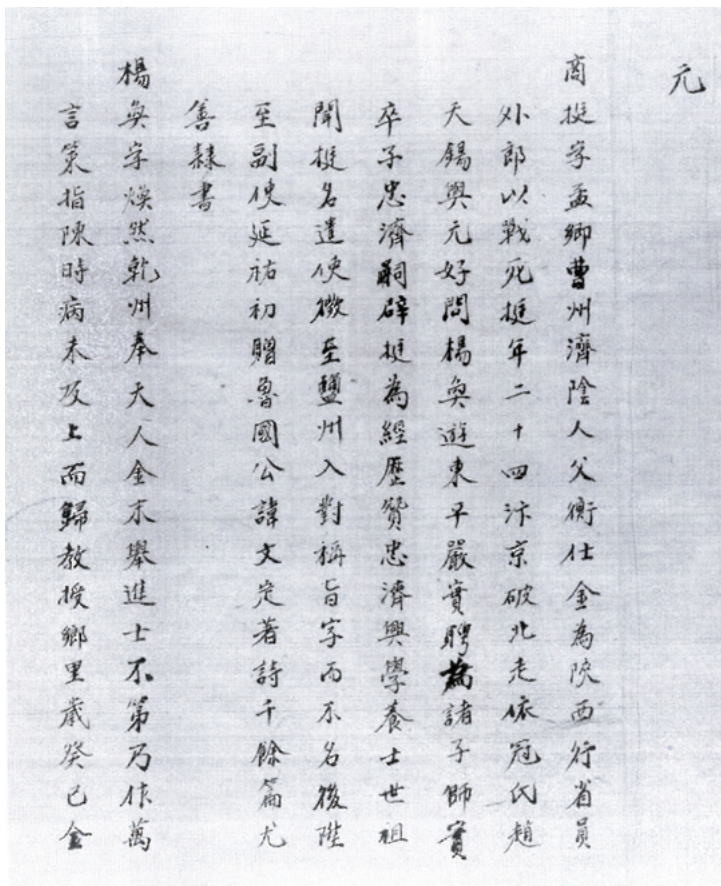 元
商挺字孟卿曹州濟陰人父衡仕金為陝西行省員
外郎以戰死挺年二十四汴京破北走依冠氏趙
天錫與元好問楊奐遊東平嚴實聘為諸子師實
卒子忠濟嗣辟挺為經歷贊忠濟興學養士世祖
聞挺名遣使徵至鹽州入對稱旨字而不名後陞
至副使延祐初贈魯國公諱文定著詩千餘篇尤
善隸書
楊奐字煥然乾州奉天人金末舉進士不第乃作萬
言策指陳時病未及上而歸教授鄉里歲癸巳金